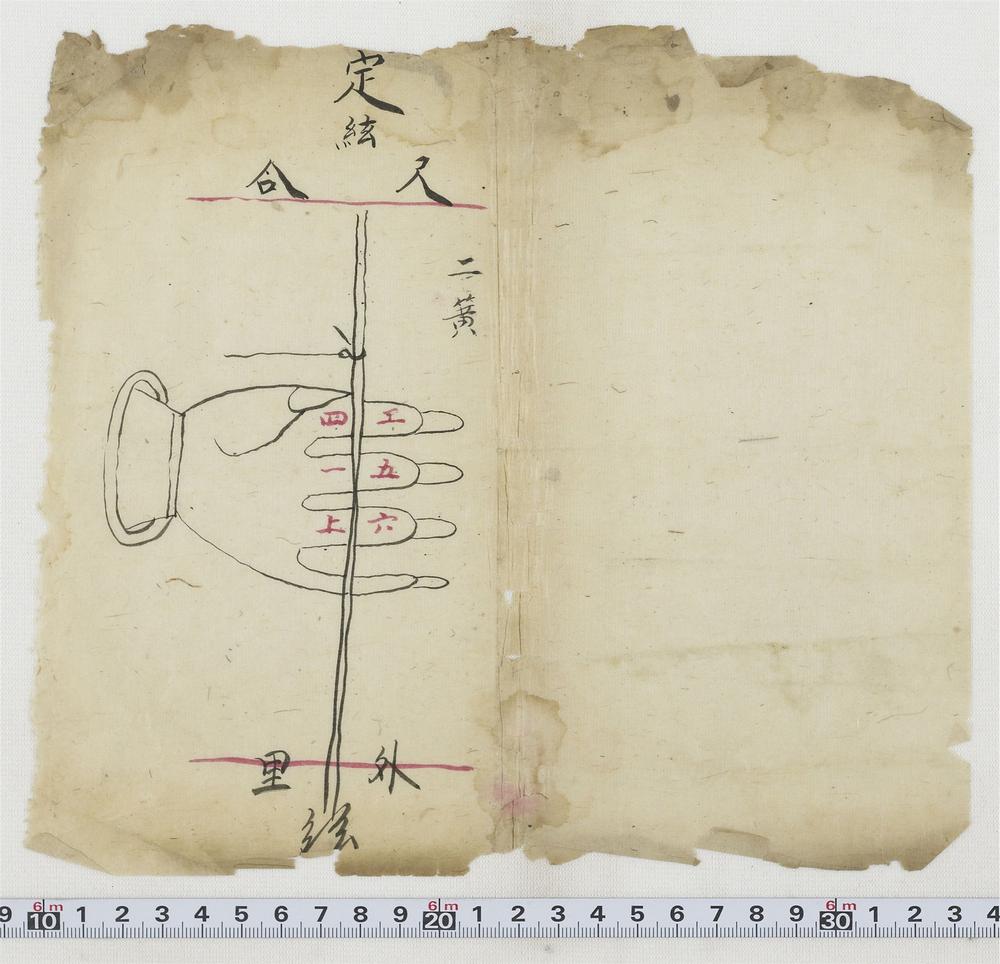 定
絃
合 尺
二
簧
四 工
一 五
上 六
里 外
絃
9 10 1 2 3 4 5 6 7 8 9 20 1 2 3 4 5 6 7 8 9 30 1 2 3 4
6 m 6 m 6 m